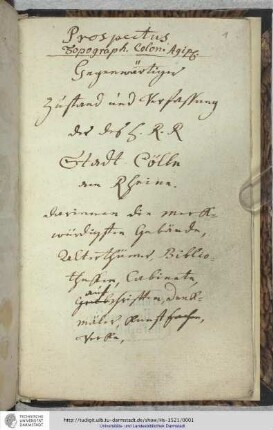 1
Prospectus
Topograph. Colon. Agipp.
Gegenwärtiger
Zustand und Verfassung
der des H. R. R
Stadt Cölln
am Rheine.
darinnen die merk-
würdigsten Gebäude,
Alterthümer, Biblio-
theken, Cabinete,
schriften, Denk-
mäler, Kunst
werke,
TECHNISCHE
UNIVERSITÄT
DARMSTADT
http://tudigit.ulb.tu-darmstadt.de/show/Hs-2521/0001
Universitäts- und Landesbibliothek Darmstadt